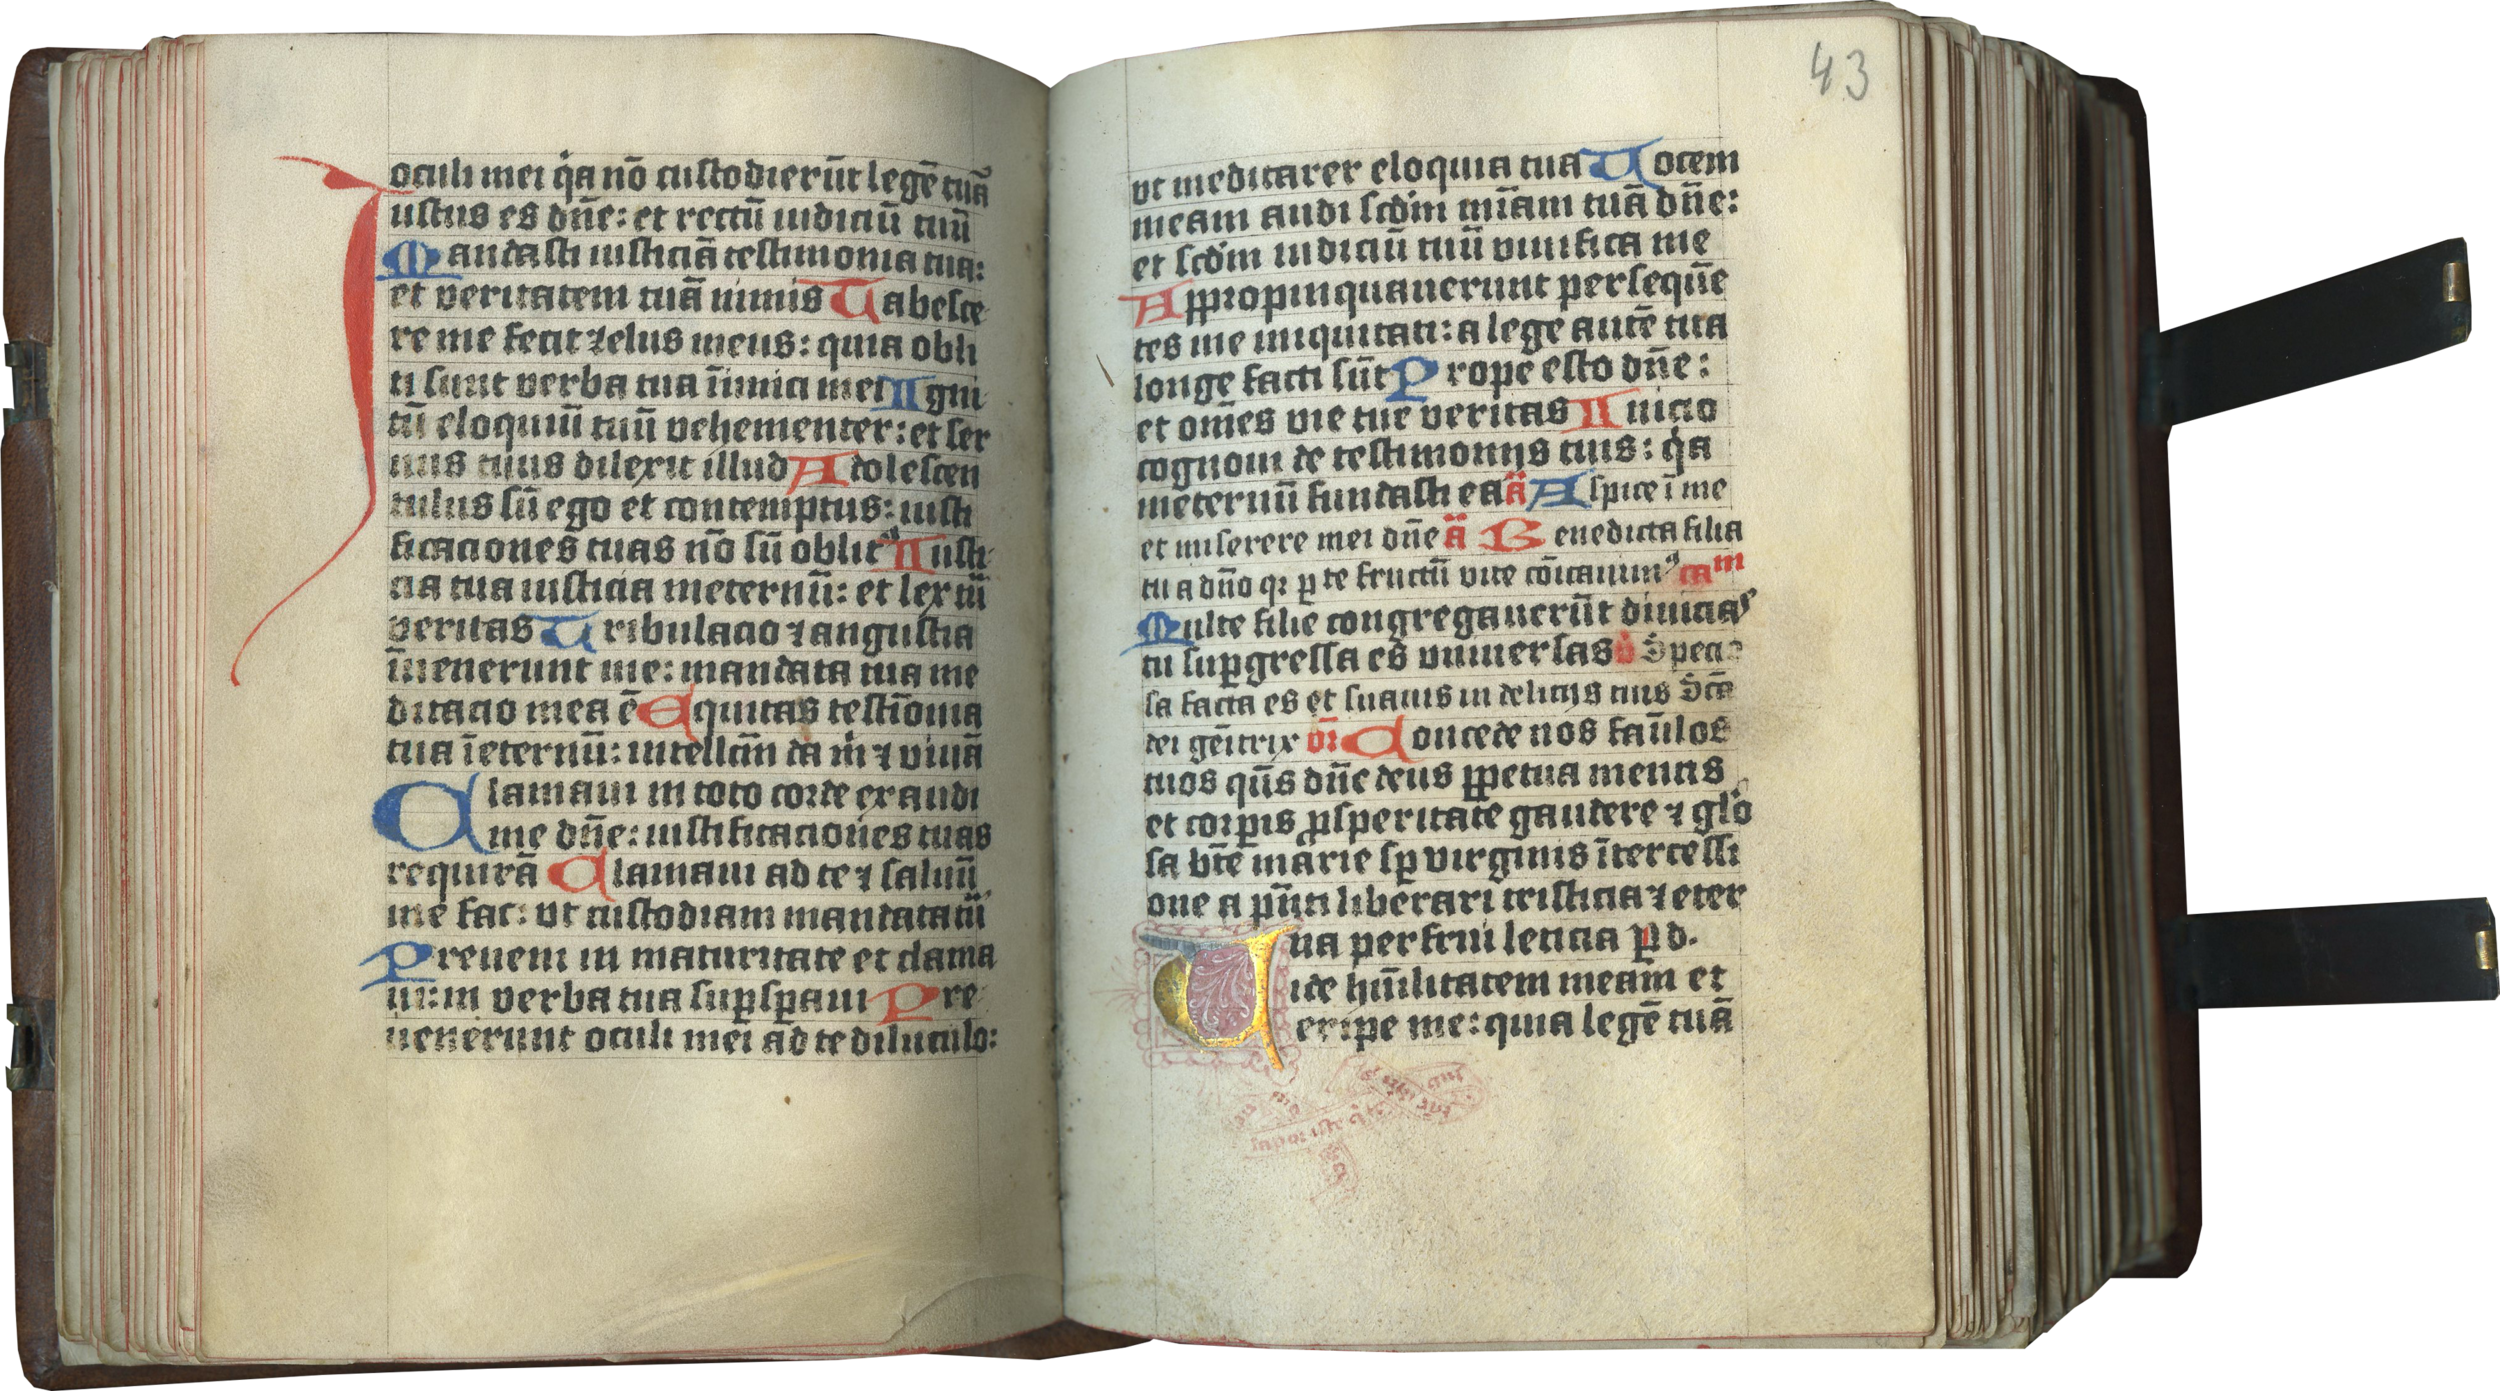 oculi mei q̇a nō custodierūt legē tuā
Iustus es dn̄e: et rectū iudiciū tuū
Mandasti iusticiā testimonia tua:
et veritatem tuā nimis Tabesce
re me fecit zelus meus: quia obli
ti sunt verba tua īimici mei Igni
tū eloquiū tuū vehementer: et ser
uus tuus dilexit illud Adolescen
tulus sū ego et contemptus: iusti
ficaciones tuas nō sū oblitꝰ Iusti
cia tua iusticia ineternū: et lex tū
veritas Tribulacio ⁊ angustia
īuenerunt me: mandata tua me
ditacio mea ē Equitas testīonia
tua īeternū: intellc̄m da ṁ ⁊ viuā
Clamaui in toto corde exaudi
me dn̄e: iustificaciones tuas
requirā Clamaui ad te ⁊ saluū
me fac: vt custodiam mandata tū
Preueni in maturitate et clama
ui: in verba tua suꝑsꝑaui Pre
uenerunt oculi mei ad te diluculo:
43
vt meditarer eloquia tua Uocem
meam audi scd̄m mīam tuā dn̄e:
et scd̄m iudiciū tuū viuifica me
Appropinquauerunt persequē
tes me iniquitati: a lege autē tua
longe facti sūt Prope esto dn̄e:
et om̄es vie tue veritas Inicio
cognoui de testimonijs tuis: q̇a
ineternū fundasti ea ä Aspice ī me
et miserere mei dn̄e ä Benedicta filia
tu a dn̄o qꝛ ꝑ te fructū vite cōicauimꝰ cam
Multe filie congregauerūt diuicias
tu suꝑgressa es vniuersas v̇ Specio
sa facta es et suauis in delicijs tuis Sc̄a
dei gēitrix or̄ Concede nos fam̄los
tuos qs̄ dn̄e deus ꝑpetua mentis
et corꝑis ꝓsperitate gaudere ⁊ glo
sa bt̄e marie sꝑ virginis ītercessi
one a pn̄ti liberari tristicia ⁊ eter
na perfrui leticia ꝑ d.
Uide hūilitatem meam et
eripe me: quia legē tuā